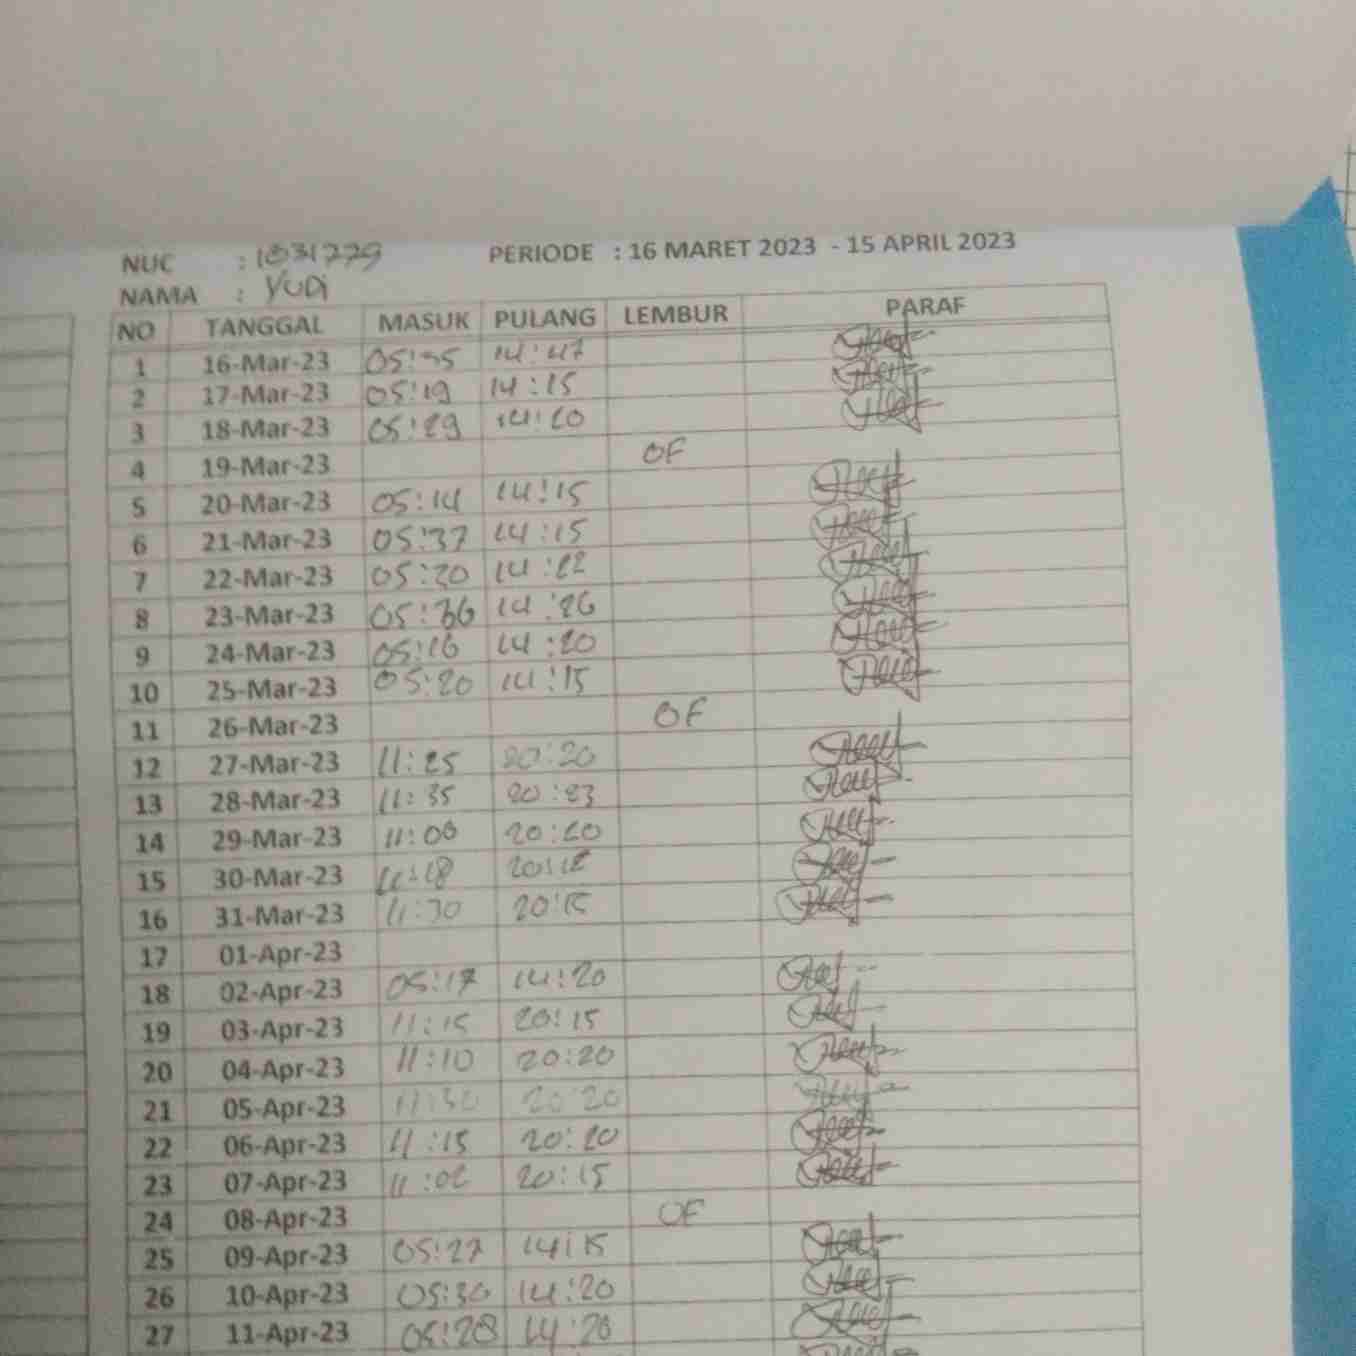 NUC : 1831779
NAMA : YUDi
PERIODE : 16 MARET 2023 - 15 APRIL 2023
NO TANGGAL MASUK PULANG LEMBUR PARAF
1 16-Mar-23 05:35 14:47
2 17-Mar-23 05:19 14:15
3 18-Mar-23 05:29 14:20
4 19-Mar-23 OF
5 20-Mar-23 05:14 14:15
6 21-Mar-23 05:37 14:15
7 22-Mar-23 05:20 14:22
8 23-Mar-23 05:36 14:26
9 24-Mar-23 05:16 14:20
10 25-Mar-23 05:20 14:15
11 26-Mar-23 OF
12 27-Mar-23 11:25 20:20
13 28-Mar-23 11:35 20:23
14 29-Mar-23 11:00 20:20
15 30-Mar-23 11:18
16 31-Mar-23 11:30 20:15
17 01-Apr-23
18 02-Apr-23 05:17 14:20
19 03-Apr-23 11:15 20:15
20 04-Apr-23 11:10 20:20
21 05-Apr-23 11:30 20:20
22 06-Apr-23 11:15 20:20
23 07-Apr-23 11:02 20:15
24 08-Apr-23 OF
25 09-Apr-23 05:27 14:15
26 10-Apr-23 05:30 14:20
27 11-Apr-23 05:28 14:20